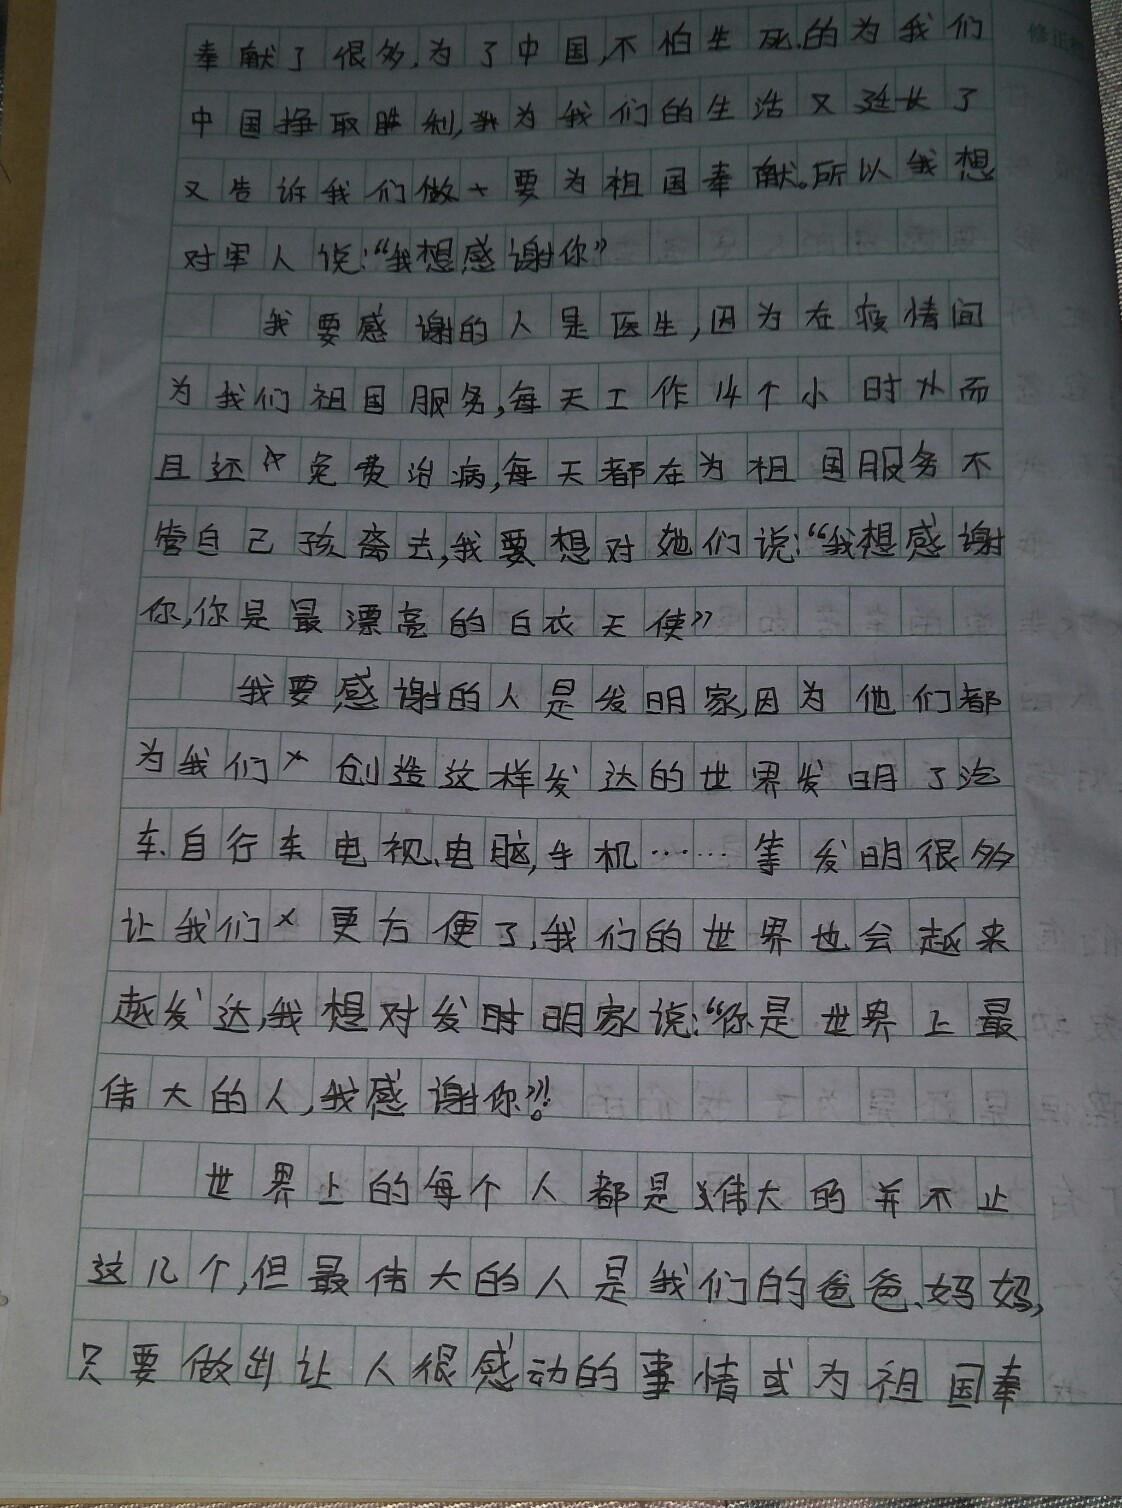 奉献了很多,为了中国,不怕生死,的为我们
中国挣取胜利,我为我们的生活又延长了
又告诉我们做要为祖国奉献。所以我想
对军人说:“我想感谢你”
我要感谢的人是医生,因为在疫情间
为我们祖国服务,每天工作14个小时而
且还免费治病,每天都在为祖国服务不
管自己孩离去,我要想对她们说:“我想感谢
你,你是最漂亮的白衣天使”
我要感谢的人是发明家,因为他们都
为我们创造这样发达的世界发明了汽
车、自行车电视、电脑,手机……等发明很多
让我们更方便了,我们的世界也会越来
越发达,我想对发时明家说:“你是世界上最
伟大的人,我感谢你”!
世界上的每个人都是伟大的并不止
这几个,但最伟大的人是我们的爸爸、妈妈,
只要做出让人很感动的事情或为祖国奉